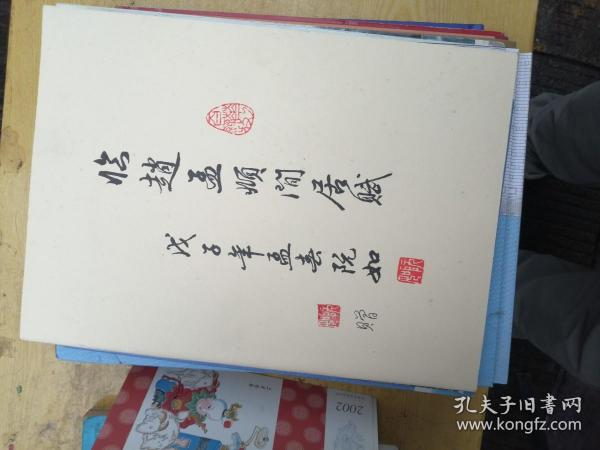 临赵孟頫閒居赋
戊子年孟春阮如
赠
2002
孔夫子旧书网
www.kongfz.com